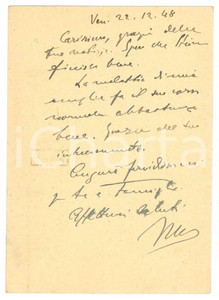 Ven. 22.12.48
Carissimo, grazie delle
tue notizie. Spero che
finisca bene.
La malattia di mia
moglie fa il suo corso
normale abbastanza
bene. Grazie del tuo
interessamento.
Auguri
a te e famiglia.
Affettuosi saluti